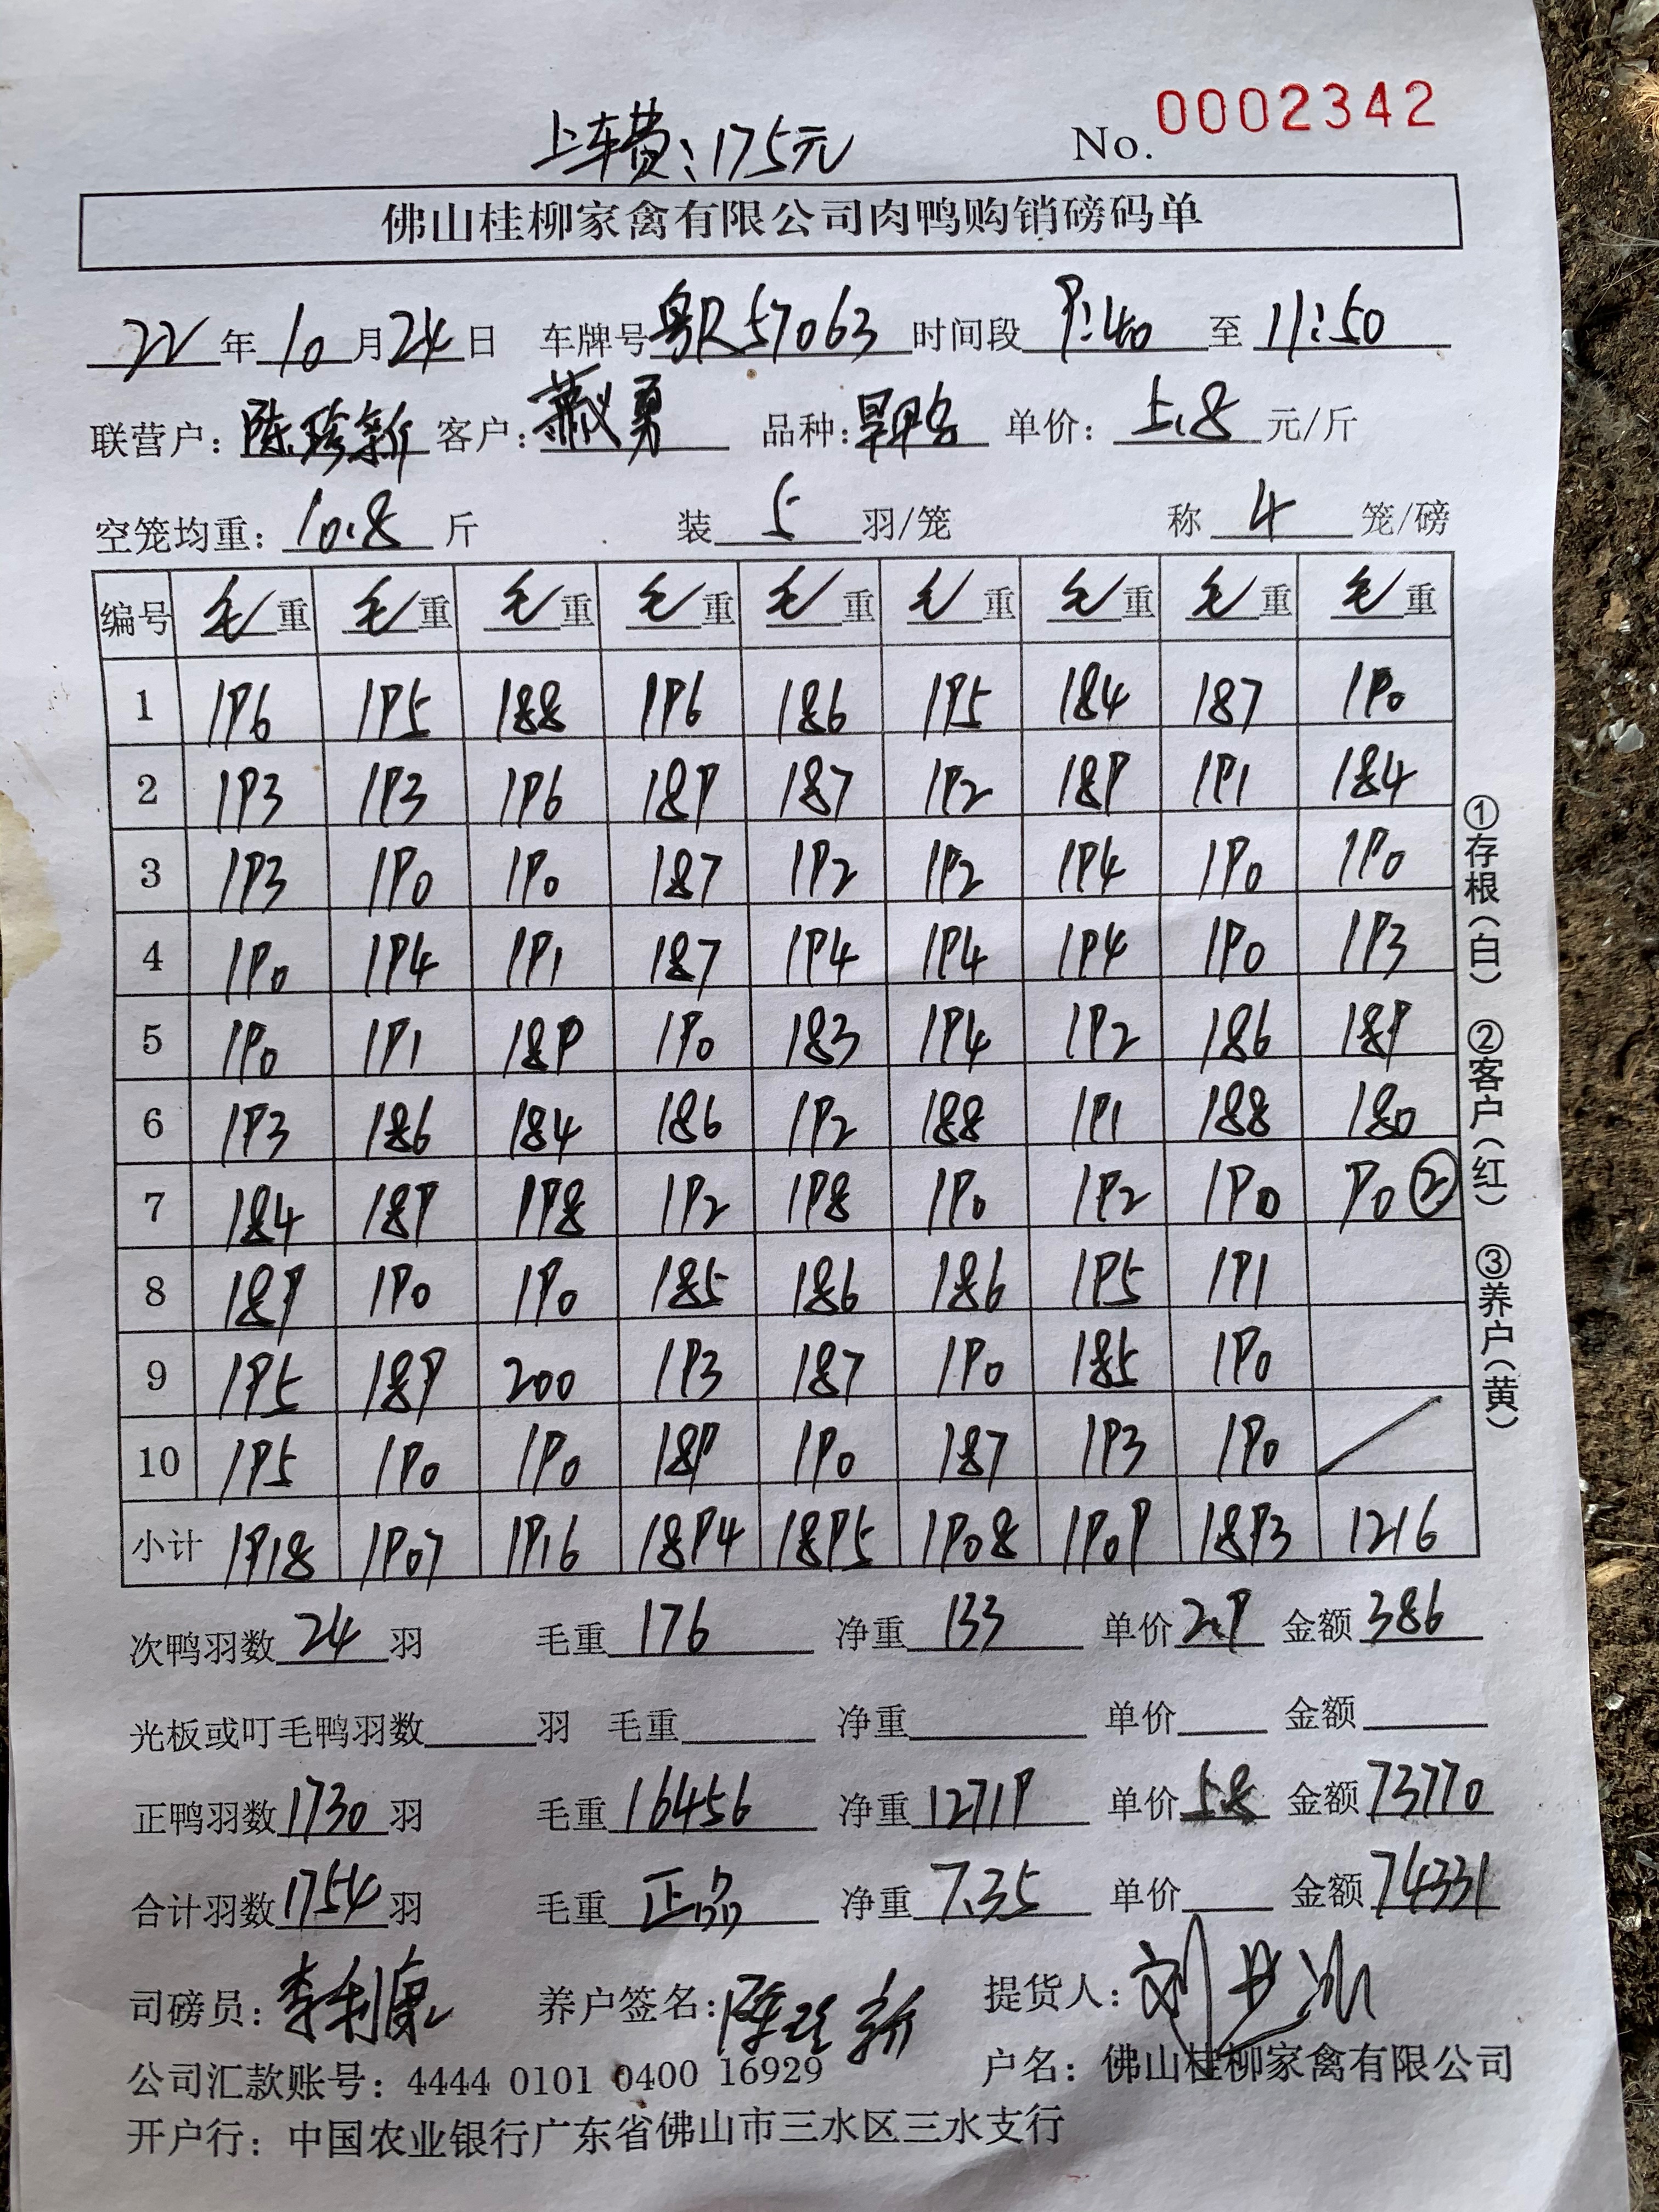 上车费：175元
No. 0002342
佛山桂柳家禽有限公司肉鸭购销磅码单
22年10月24日 车牌号粤R57063 时间段9:40至11:50
联营户：陈珍新 客户：勇 品种： 单价：5.8元/斤
空笼均重：10.8斤 装5羽/笼 称4笼/磅
编号 毛重 毛重 毛重 毛重 毛重 毛重 毛重 毛重 毛重
1 196 195 188 196 186 195 184 187 190
2 193 193 196 189 187 192 189 191 184
3 193 190 190 187 192 192 194 190 190
4 190 194 191 187 194 194 194 190 193
5 190 191 189 190 183 194 192 186 189
6 193 186 184 186 192 188 191 188 180
7 184 189 198 192 198 190 192 190 90②
8 189 190 190 185 186 186 195 191
9 195 189 200 193 187 190 185 190
10 195 190 190 189 190 187 193 190 /
小计 1918 1907 1916 1894 1895 1908 1909 1893 1216
次鸭羽数24羽 毛重176 净重133 单价2.9 金额386
光板或叮毛鸭羽数 羽 毛重 净重 单价 金额
正鸭羽数1730羽 毛重16456 净重12719 单价5.8 金额73770
合计羽数1754羽 毛重正品 净重7.35 单价 金额74331
司磅员：李利康 养户签名：陈珍新 提货人：刘
公司汇款账号：4444 0101 0400 16929 户名：佛山桂柳家禽有限公司
开户行：中国农业银行广东省佛山市三水区三水支行
①存根（白） ②客户（红） ③养户（黄）